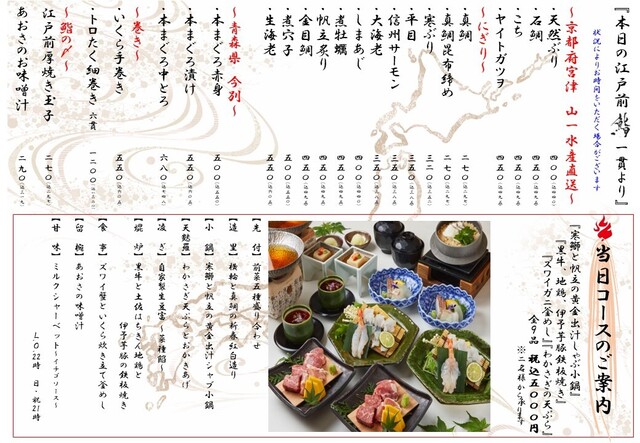 『本日の江戸前鮨 一貫より』
状況によりお時間をいただく場合がございます
～京都府宮津 山一水産直送～
・天然ぶり
・石鯛
・こち
・ヤイトガツヲ
～にぎり～
・真鯛 二七〇
・真鯛昆布締め 二七〇
・寒ぶり 三二〇
・平目 三五〇
・信州サーモン 三五〇
・大海老 三五〇
・しまあじ 四五〇
・煮牡蠣 四五〇
・帆立炙り 四五〇
・金目鯛 四五〇
・煮穴子 五〇〇
・生海老 五五〇
～青森県 今別～
・本まぐろ赤身 五〇〇
・本まぐろ漬け 五五〇
・本まぐろ中とろ 六八〇
～巻き～
・いくら手巻き 五五〇
・トロたく細巻き 六貫 一二〇〇
～鮨の〆～
江戸前厚焼き玉子 二七〇
あおさのお味噌汁 二九〇
当日コースのご案内
『寒鰤と帆立の黄金出汁しゃぶ小鍋』
『黒牛、地鶏、伊予芋豚の鉄板焼き』
『ズワイガニ釜めし』『わかさぎの天ぷら』
全9品 税込五〇〇〇円
※二名様から承ります
【先付】前菜五種盛り合わせ
【造里】横輪と真鯛の新春紅白造り
【小鍋】寒鰤と帆立の黄金出汁シャブ小鍋
【天麩羅】わかさぎ天ぷらとおかきあげ
【凌ぎ】自家製生豆富～菜種餡～
【焜炉】黒牛と土佐はちきん地鶏と
伊予芋豚の鉄板焼き
【食事】ズワイ蟹といくら炊き立て釜めし
【留椀】あおさの味噌汁
【甘味】ミルクシャーベット～イチゴソース～
LO22時 日・祝21時